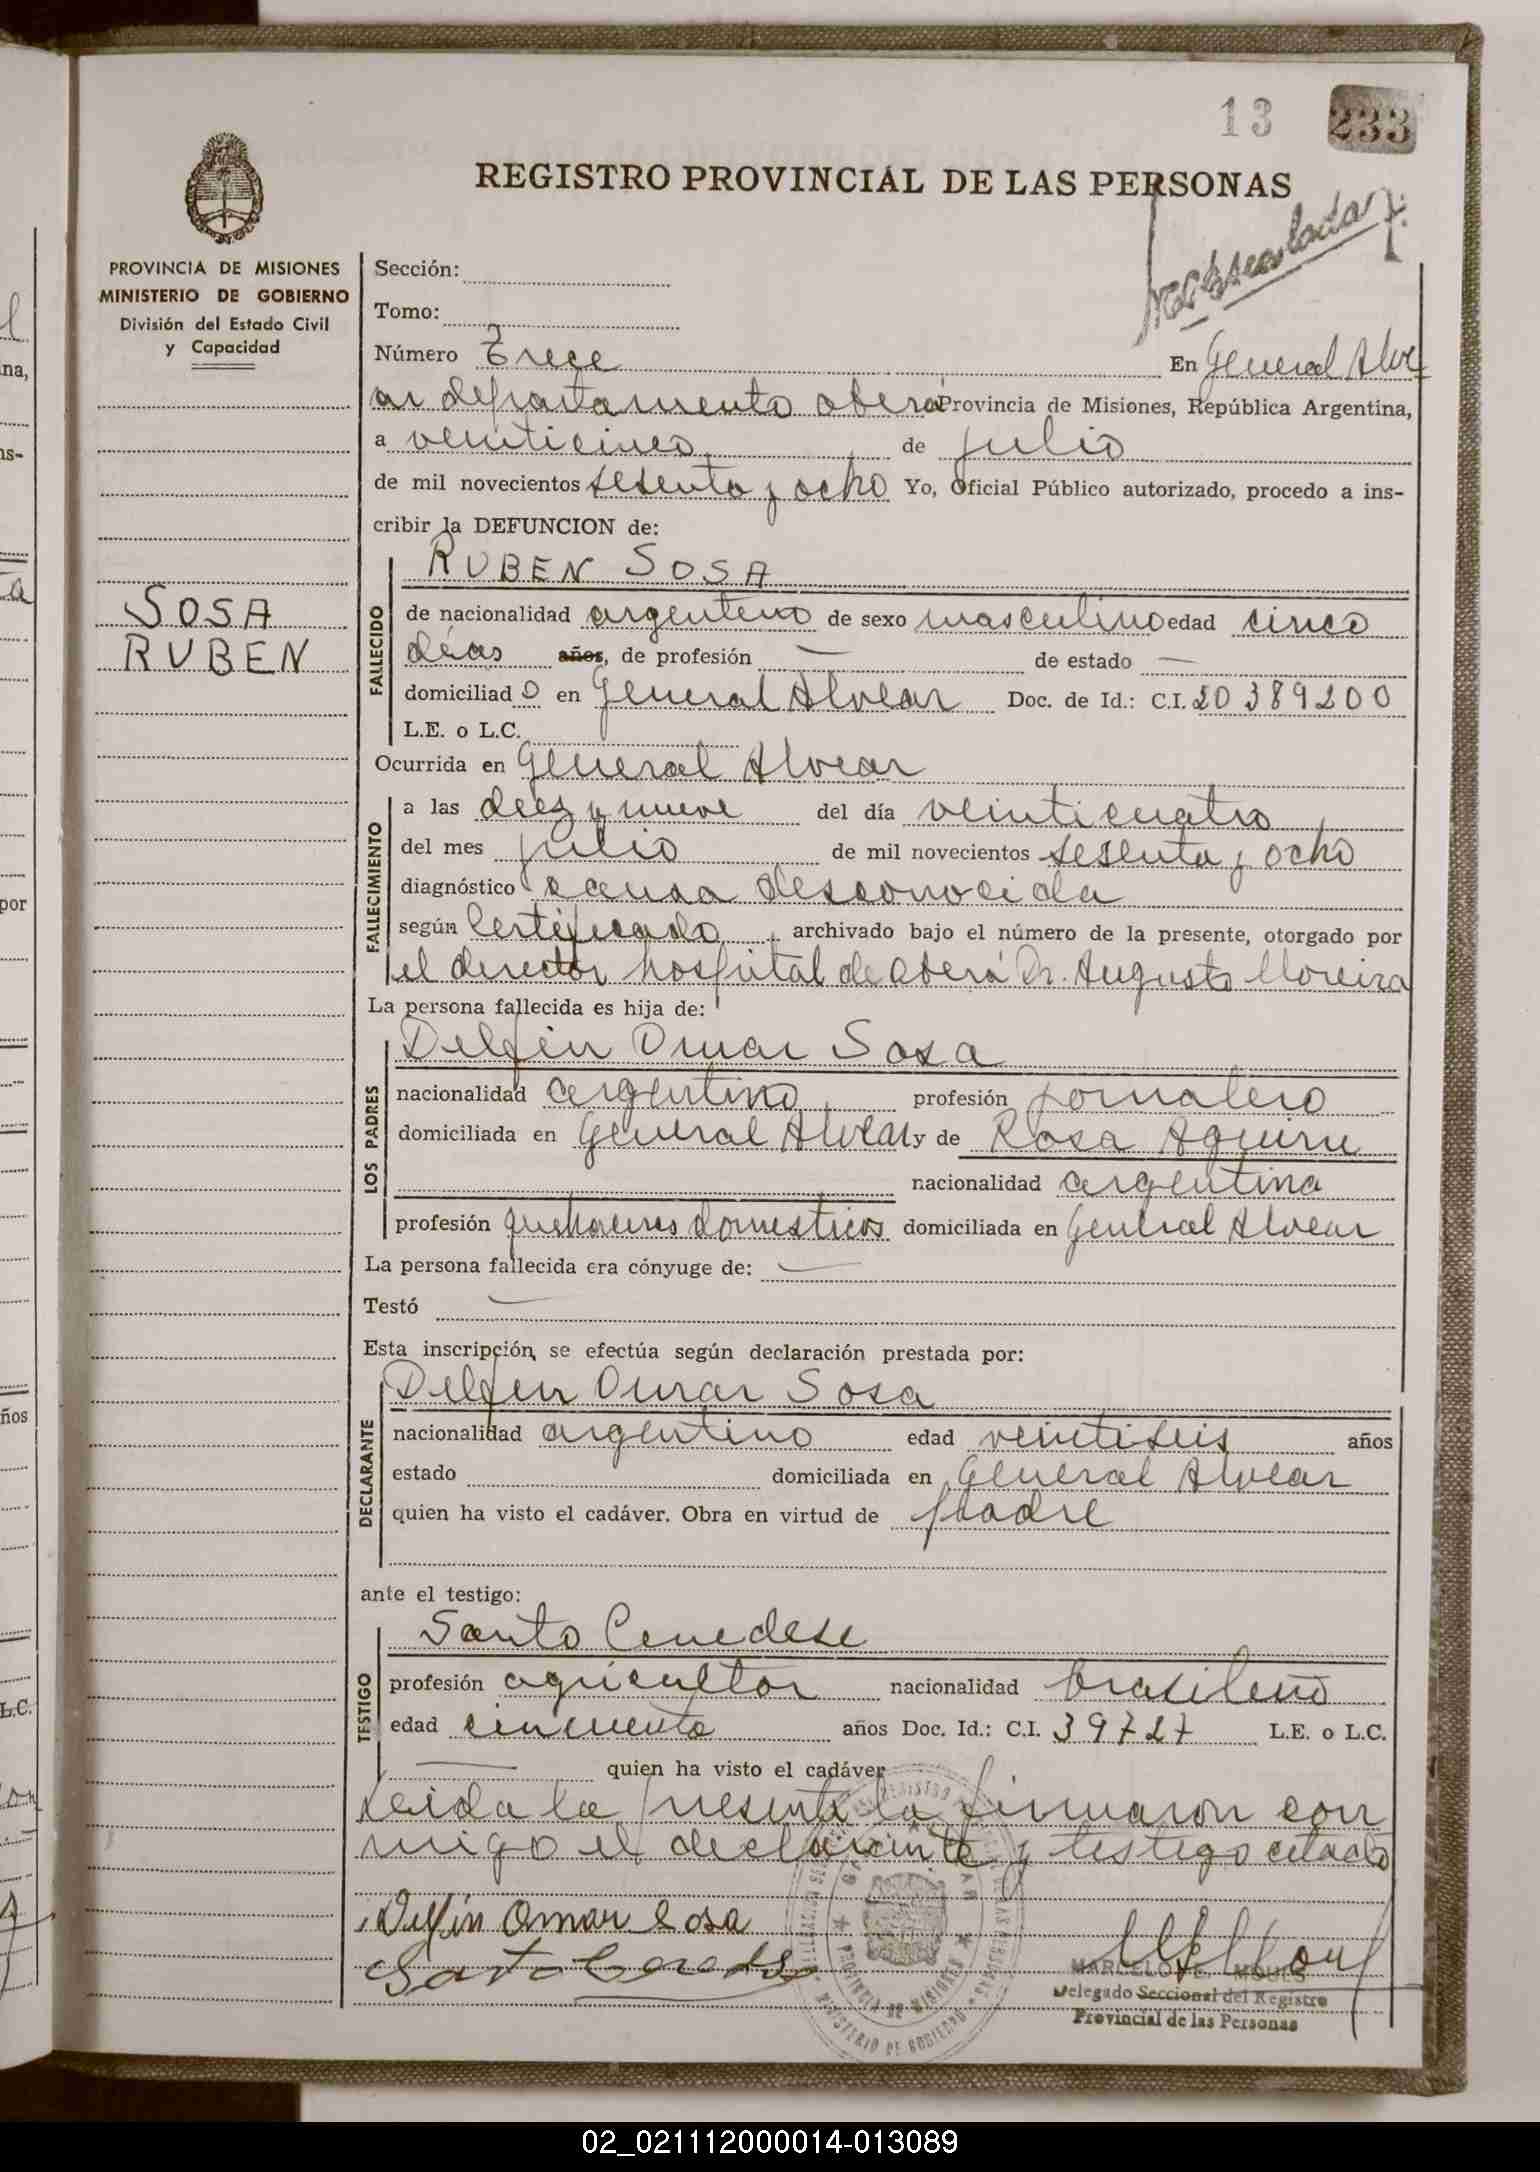 13 233
REGISTRO PROVINCIAL DE LAS PERSONAS
PROVINCIA DE MISIONES
MINISTERIO DE GOBIERNO
División del Estado Civil
y Capacidad
Sección:
Tomo:
Número Trece En General Alve
ar departamento oberá Provincia de Misiones, República Argentina,
a veinticinco de julio
de mil novecientos sesenta y ocho Yo, Oficial Público autorizado, procedo a ins-
cribir la DEFUNCION de:
SOSA
RUBEN
FALLECIDO
RUBEN SOSA
de nacionalidad argentino de sexo masculino edad cinco
días años, de profesión — de estado —
domiciliado en General Alvear Doc. de Id.: C.I. 20389200
L.E. o L.C.
Ocurrida en General Alvear
FALLECIMIENTO
a las diez y nueve del día veinticuatro
del mes julio de mil novecientos sesenta y ocho
diagnóstico causa desconocida
según Certificado archivado bajo el número de la presente, otorgado por
el director hospital de oberá Dr. Augusto Moreira
La persona fallecida es hija de:
LOS PADRES
Delfin Omar Sosa
nacionalidad argentino profesión jornalero
domiciliada en General Alvear y de Rosa Aguirre
nacionalidad argentina
profesión quehaceres domesticos domiciliada en General Alvear
La persona fallecida era cónyuge de: —
Testó —
Esta inscripción se efectúa según declaración prestada por:
DECLARANTE
Delfin Omar Sosa
nacionalidad argentino edad veintiseis años
estado domiciliada en General Alvear
quien ha visto el cadáver. Obra en virtud de padre
ante el testigo:
TESTIGO
Santo Cenedese
profesión agricultor nacionalidad brasileño
edad cincuenta años Doc. Id.: C.I. 39727 L.E. o L.C.
— quien ha visto el cadáver
Leida la presente la firmaron con
migo el declarante y testigo citado
Delfin Omar Sosa
MARCELO E. MOULS
Delegado Seccional del Registro
Provincial de las Personas
PROVINCIA DE MISIONES
MINISTERIO DE GOBIERNO
02_021112000014-013089